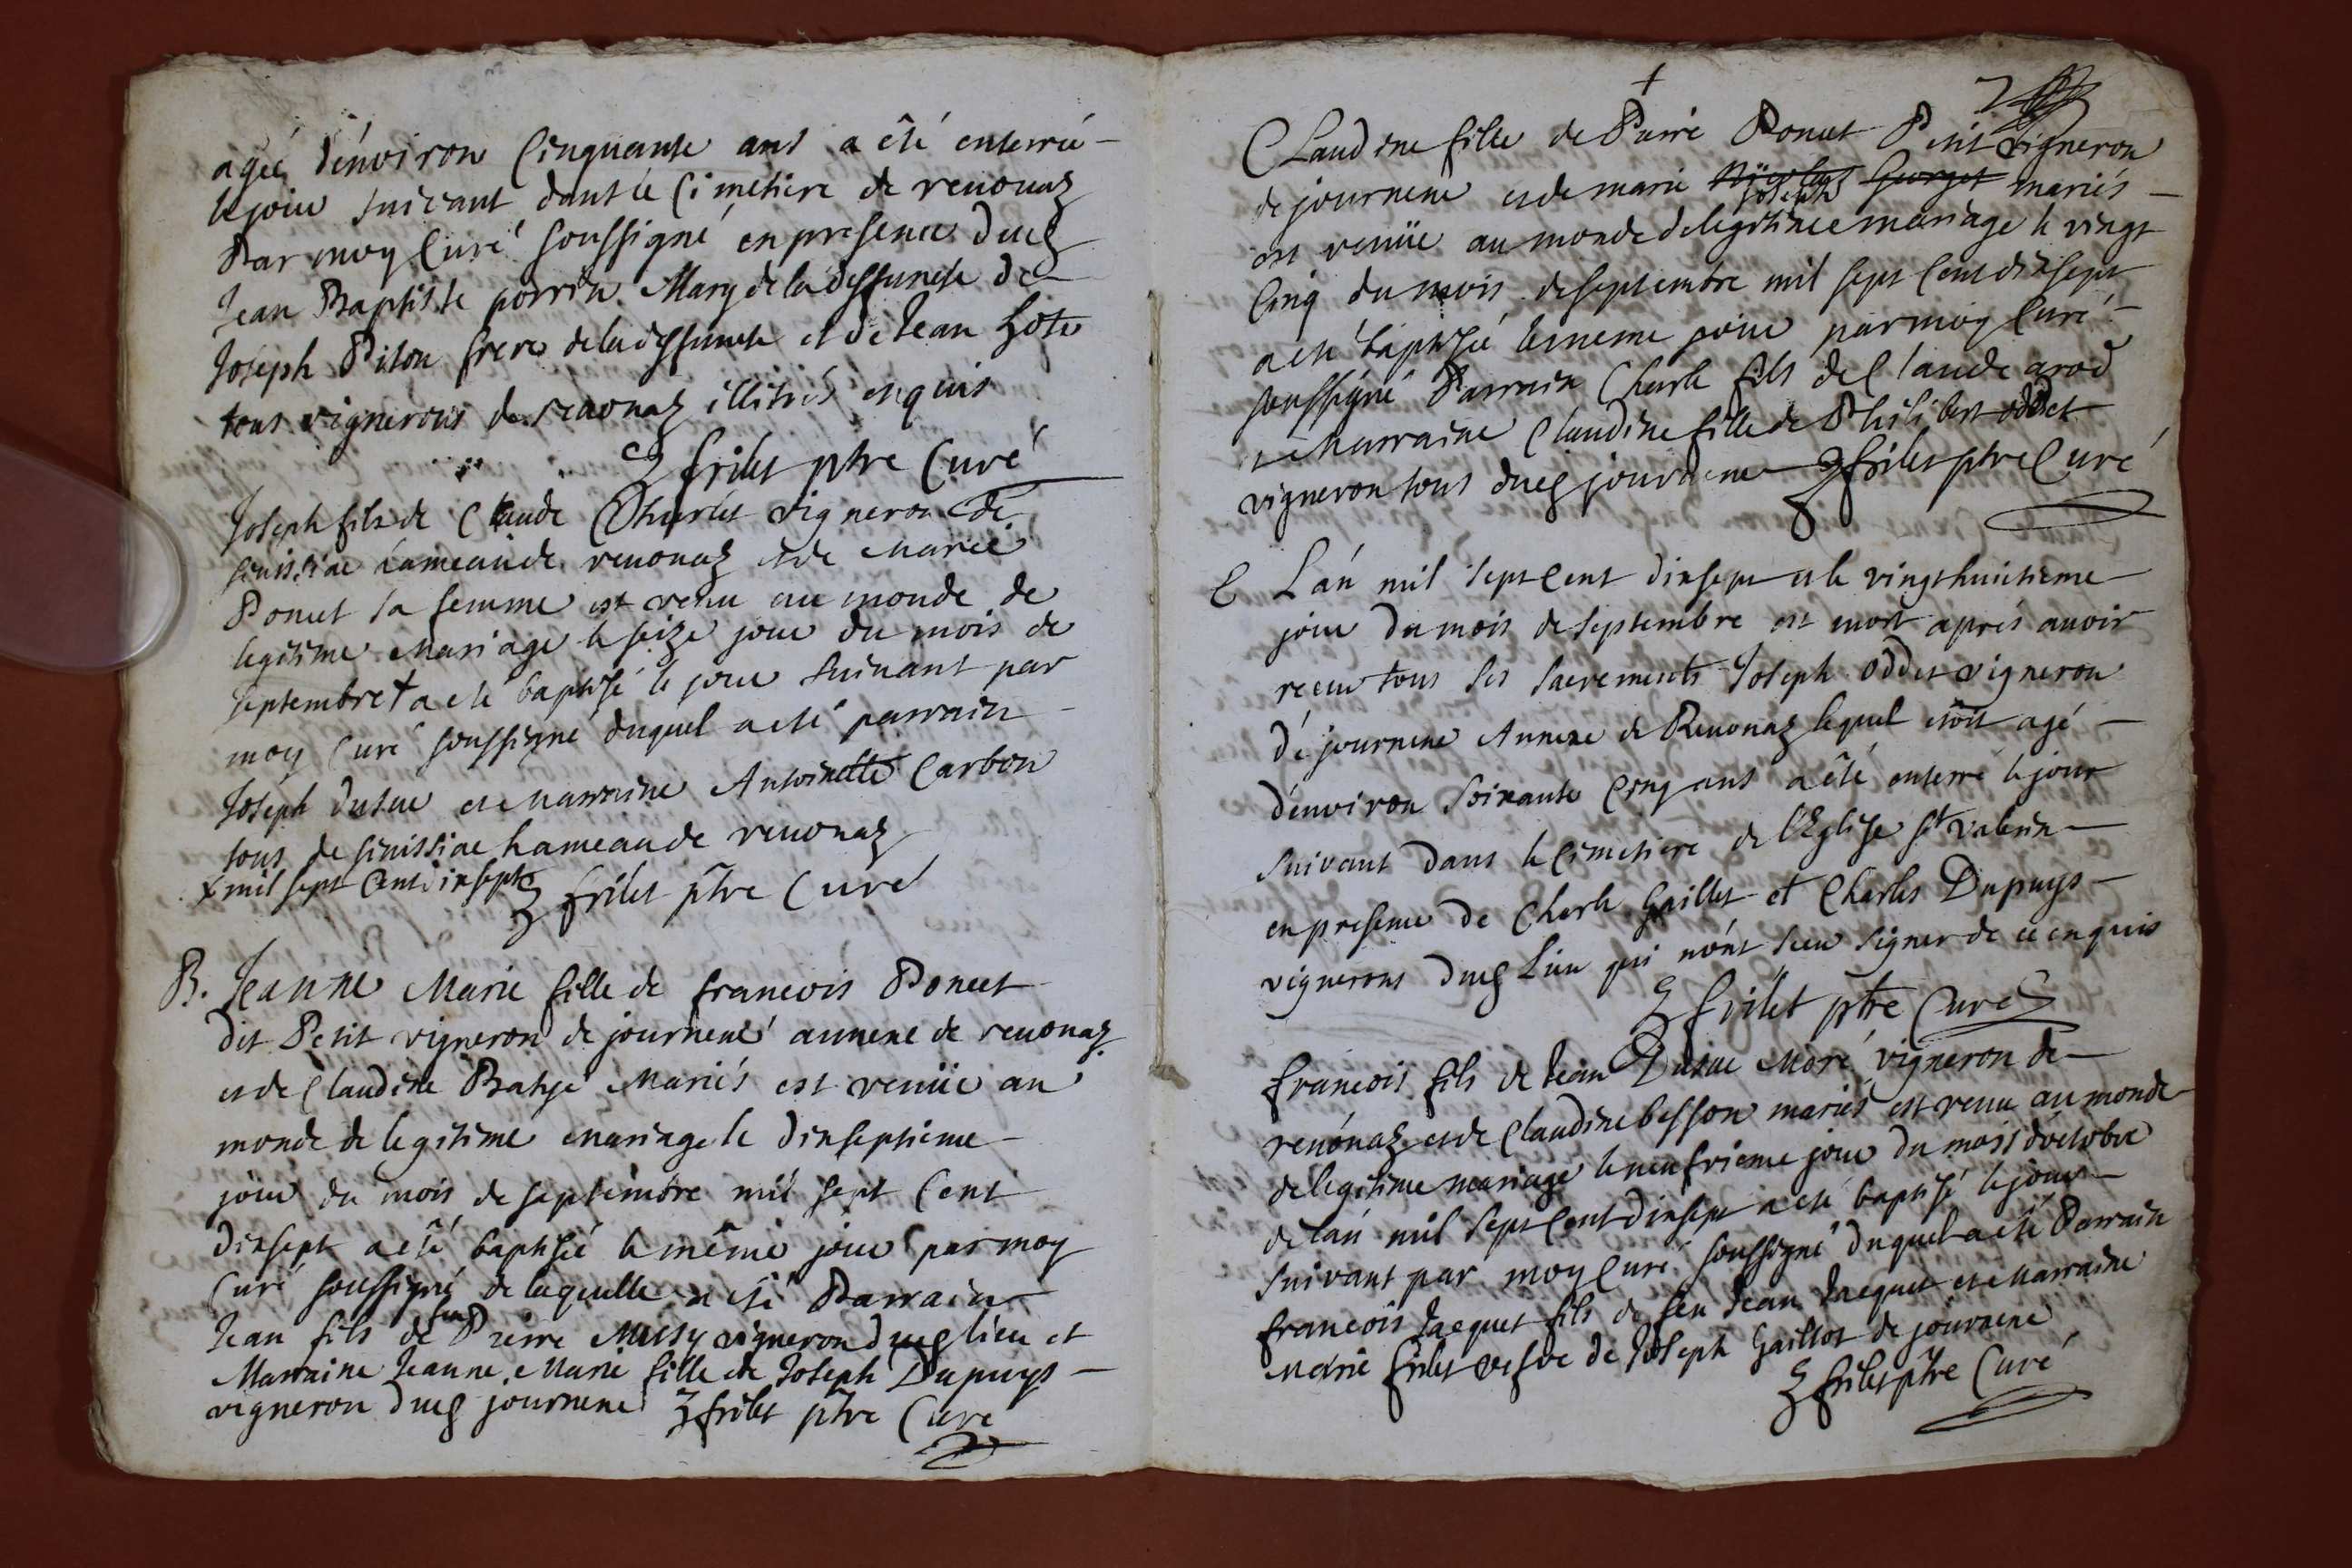 agée d'environ Cinquante ans a êté enterrée
le jour suivant dans le Cimetiere de reuonaz
Par moy Curé soussigné en presence dud
Jean Baptiste perrin Mary de la deffuncte de
Joseph Piton frere de la deffuncte et de Jean
tous vignerons de reuonaz illitrés enquis
frilet ptre Curé
Joseph fils de Claude Charlet vigneron de
senissiac hameau de reuonaz et de Marie
Poncet sa femme est venu au monde de
legitime Mariage le seize jour du mois de
septembre + a eté baptisé le jour suivant par
moy Curé soussigné duquel a eté parrain
Joseph dusuc et Marraine Antoinette Carbon
tous de sinissiac hameau de reuonaz
x mil sept cent dixsept
frilet ptre Curé
B. Jeanne Marie fille de francois Poncet
dit Petit vigneron de journene annexe de reuonaz
et de Claudine Mariés est venüe au
monde de legitime mariage le dixseptieme
jour du mois de septembre mil sept Cent
dixsept a eté baptisée le même jour par moy
Curé soussigné de laquelle a eté Parrain
Jean fils de feu Pierre vigneron dud lieu et
Marraine Jeanne Marie fille de Joseph Dupuys
vigneron dud journene frilet ptre Cure
+
Claudine fille de Pierre Poncet Petit vigneron
de journene et de marie Nicolas Georget mariés
Joseph
est venüe au monde de legitime mariage le vingt
Cinq du mois de septembre mil sept Cent dixsept
a eté baptisée le meme jour par moy Curé
soussigné Parrain Charle fils de Claude
et Marraine Claudine fille de Philibert oddet
vigneron tous dud journene frilet ptre Curé
E L'an mil sept Cent dixsept et le vingthuictieme
jour du mois de septembre est mort aprés auoir
receu tous ses sacrements Joseph oddet vigneron
dé journene Annexe de Reuonaz lequel etoit agé
d'environ Soixante Cinq ans a êté enterré le jour
suivant dans le Cimetiere de l'Eglise St valerin
en presence de Charle Gaillet et Charles Dupuys
vignerons dud Lieu qui n'ont sceu signer de ce enquis
frilet ptre Curé
francois fils de Jean Dusuc Moré vigneron de
reuonaz et de Claudine besson mariés est venu au monde
de legitime mariage le neufvieme jour du mois d'octobre
de l'an mil sept Cent dixsept a eté baptisé le jour
suivant par moy Curé soussigné duquel a eté Parrain
francois Jacquet fils de feu Jean Jacquet et Marraine
Marie frilet vefve de Joseph Gaillot de journene
frilet ptre Curé